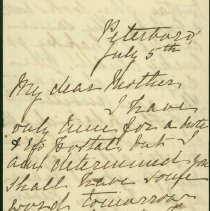 Peterboro,
July 5th
My dear Mother,
I have
only time for a note
& postal but I
am determined you
shall have some
word tomorrow